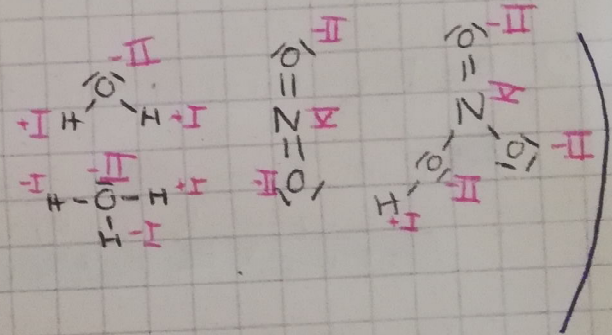 -II
O
+I H H +I
-II
-I H - O - H +I
H -I
-II
O
=
N V
=
-II O
-II
O
=
N V
O O -II
-II
H
+I